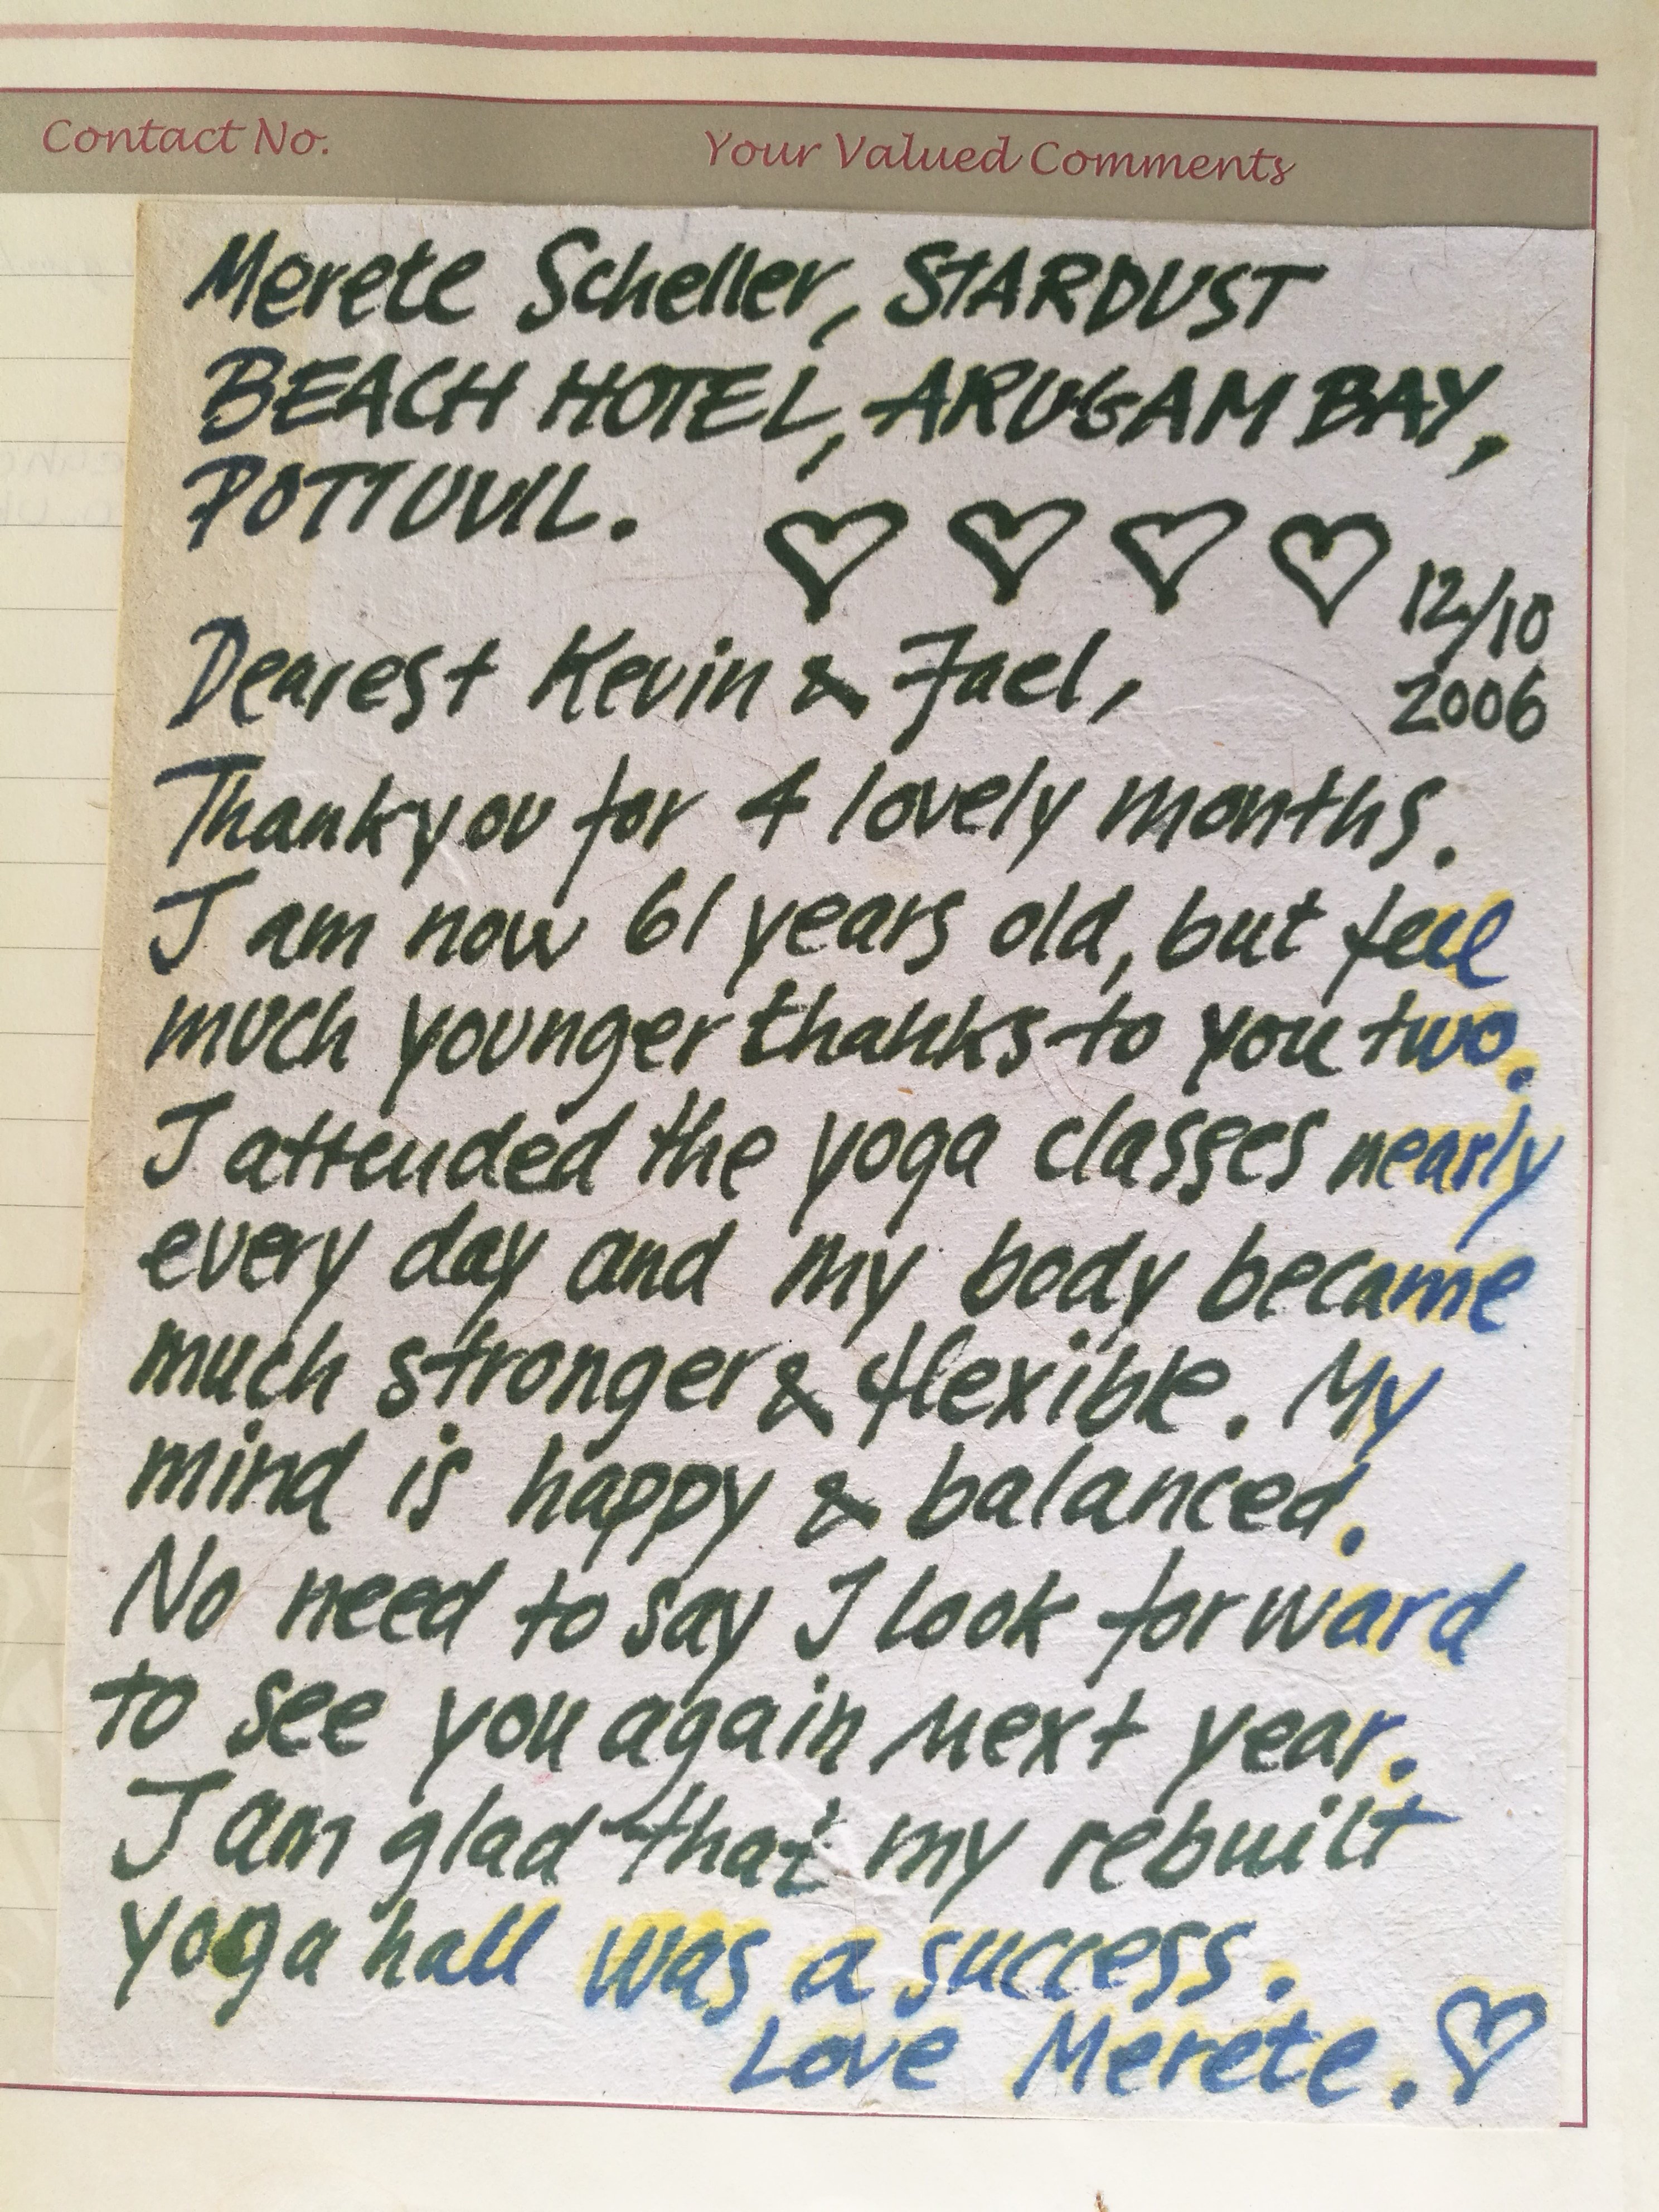 Contact No.
Your Valued Comments
Merete Scheller, STARDUST
BEACH HOTEL, ARUGAM BAY,
POTTUVIL. ♡ ♡ ♡ ♡
12/10
2006
Dearest Kevin & Jael,
Thank you for 4 lovely months.
I am now 61 years old, but feel
much younger thanks to you two.
I attended the yoga classes nearly
every day and my body became
much stronger & flexible. My
mind is happy & balanced.
No need to say I look forward
to see you again next year.
I am glad that my rebuilt
yoga hall was a success.
Love Merete. ♡